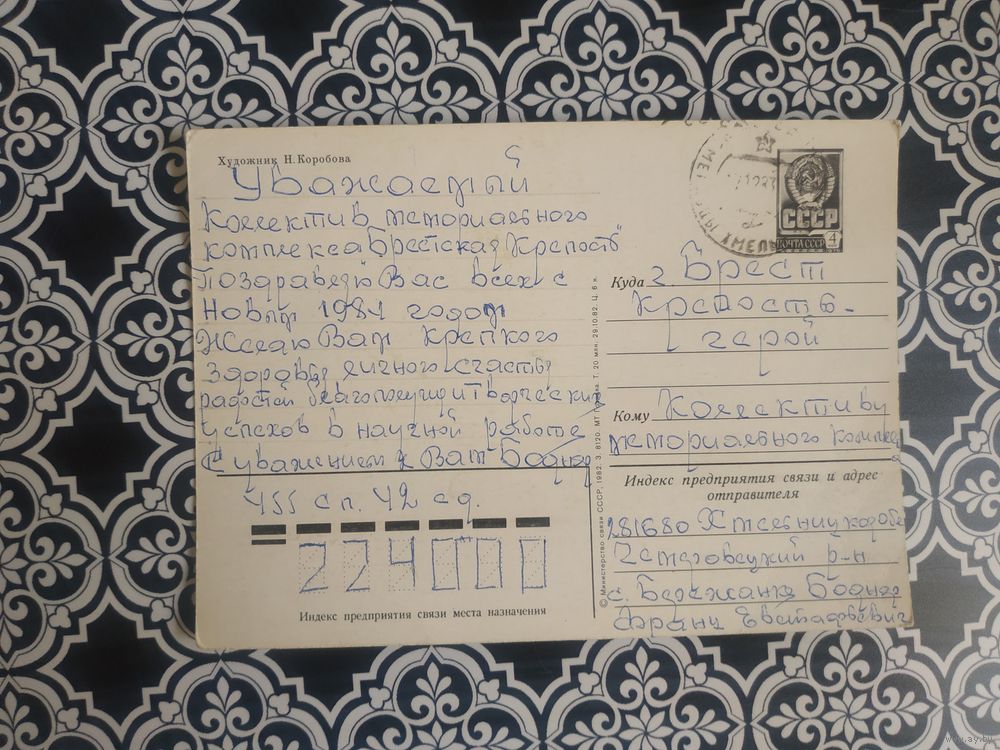 Художник Н. Коробова
Уважаемый
Коллектив мемориального
комплекса Брестская Крепость
Поздравляю Вас всех с
Новым 1984 годом
Желаю Вам Крепкого
здоровья личного счастья
радостей благополучия Творческих
успехов в научной работе
С уважением к Вам Боднар
455 сп. 42 сд.
224000
Индекс предприятия связи места назначения
© Министерство связи СССР, 1982. З. 8120. МТ Т. 20 млн. 29.10.82. Ц. 6 к.
СССР
ПОЧТА СССР 4
Куда г. Брест
крепость-
герой
Кому Коллективу
мемориального комплекса
Индекс предприятия связи и адрес
отправителя
281680
р-н
с. Боднар
Франц Евстафьевич
www.ay.by